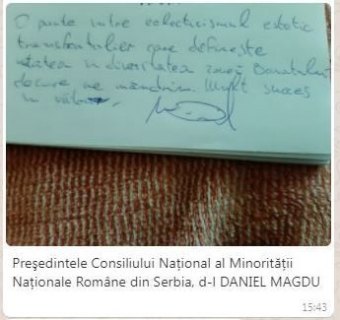 O punte între eclecticismul estetic
transfrontalier care definește
în diversitatea Banatului
ne mândrim. Mult succes
în
Preşedintele Consiliului Național al Minorității
Naționale Române din Serbia, d-l DANIEL MAGDU
15:43